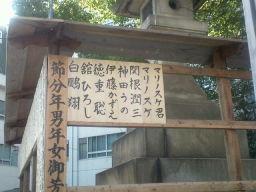 マリノスケ君
マリノスケ
関根潤三
神田うの
伊藤かずえ
舘ひろし
徳重聡
白鵬翔
節分年男年女御芳